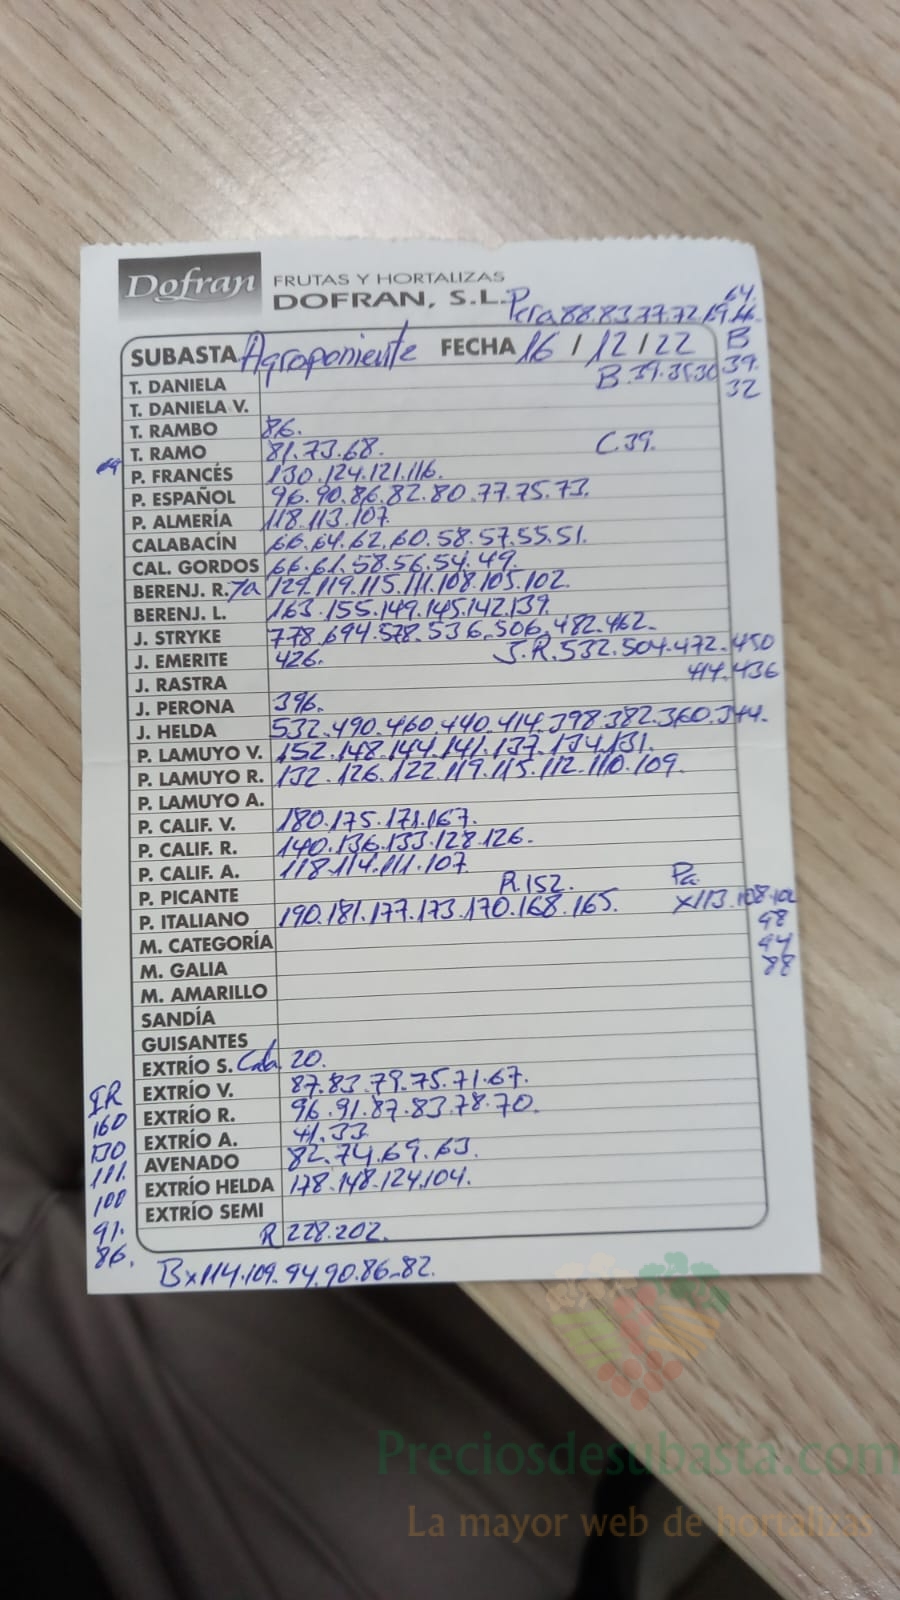 Dofran FRUTAS Y HORTALIZAS
DOFRAN, S.L.
64.
Pera 88.83.77.72
SUBASTA Agroponiente FECHA 16 / 12 / 22
B
39.
32
T. DANIELA B.39.35.30
T. DANIELA V.
T. RAMBO 86.
T. RAMO 81.73.68. C.39.
P. FRANCÉS 130.124.121.116.
P. ESPAÑOL 96.90.86.82.80.77.75.73.
P. ALMERÍA 118.113.107.
CALABACÍN 66.64.62.60.58.57.55.51.
CAL. GORDOS 66.61.58.56.54.49.
BERENJ. R. 7a 129.119.115.111.108.105.102.
BERENJ. L. 163.155.149.145.142.139.
J. STRYKE 778.694.578.536.506.482.462.
J. EMERITE 426. J.R.532.504.472.450
J. RASTRA 414.436
J. PERONA 396.
J. HELDA 532.490.460.440.414.398.382.360.344.
P. LAMUYO V. 152.148.144.141.137.134.131.
P. LAMUYO R. 132.126.122.119.115.112.110.109.
P. LAMUYO A.
P. CALIF. V. 180.175.171.167.
P. CALIF. R. 140.136.133.128.126.
P. CALIF. A. 118.114.111.107.
P. PICANTE R.152. Pa.
P. ITALIANO 190.181.177.173.170.168.165. x113.108.102
98
94
88
M. CATEGORÍA
M. GALIA
M. AMARILLO
SANDÍA
GUISANTES
EXTRÍO S. Cala. 20.
EXTRÍO V. 87.83.79.75.71.67.
EXTRÍO R. 96.91.87.83.78.70.
EXTRÍO A. 41.33
AVENADO 82.74.69.63.
EXTRÍO HELDA 178.148.124.104.
EXTRÍO SEMI
R 228.202.
IR
160
130
111.
100
91.
86.
Bx114.109.94.90.86-82.
Preciosdesubasta.com
La mayor web de hortalizas